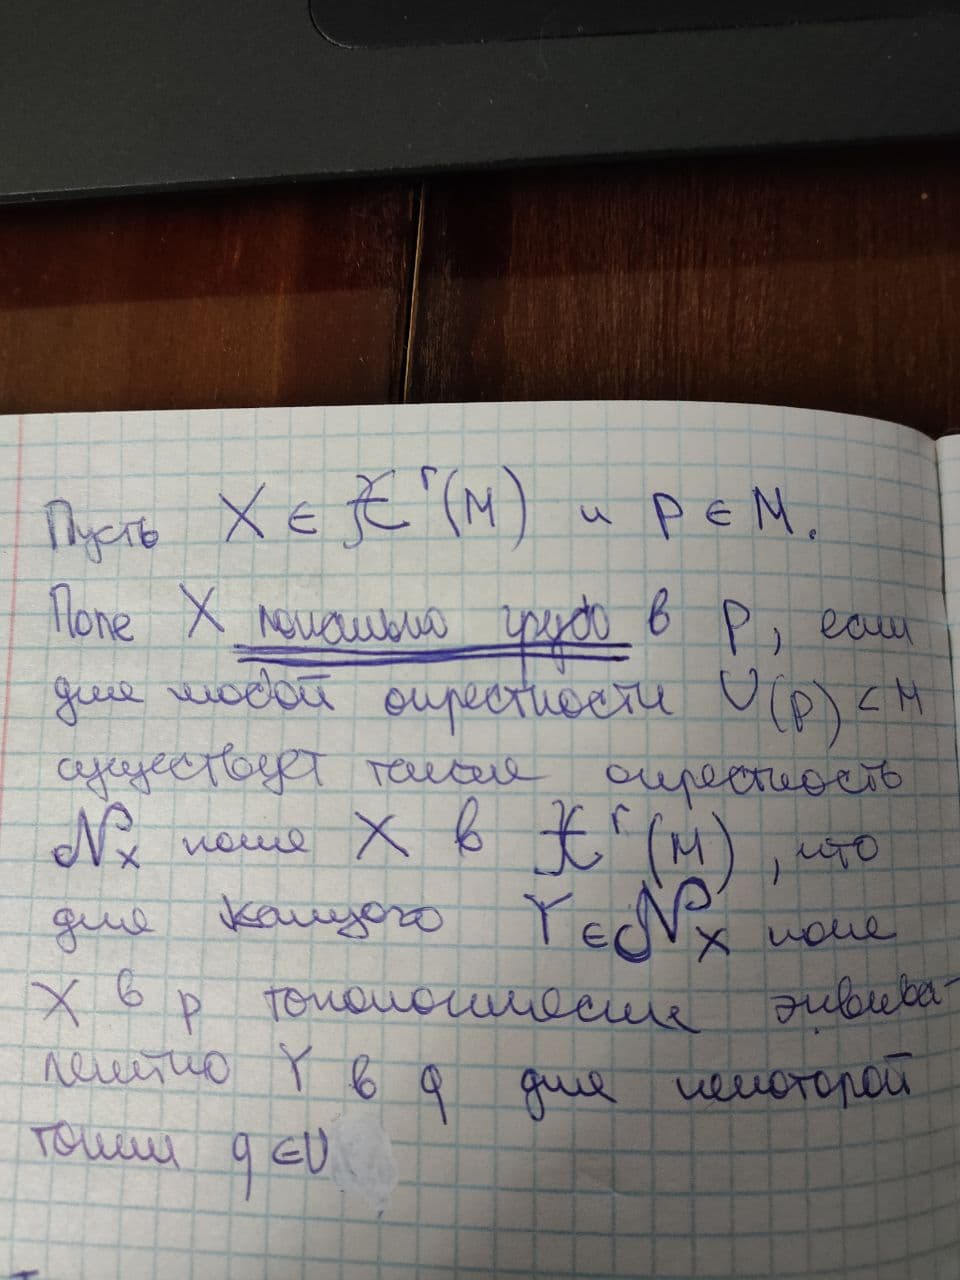 Пусть X ∈ 𝔛ʳ(M) и p ∈ M.
Поле X локально грубо в p, если
для любой окрестности U(p) ⊂ M
существует такая окрестность
𝒩ₓ поля X в 𝔛ʳ(M), что
для каждого Y ∈ 𝒩ₓ поле
X в p топологически эквива-
лентно Y в q для некоторой
точки q ∈ U